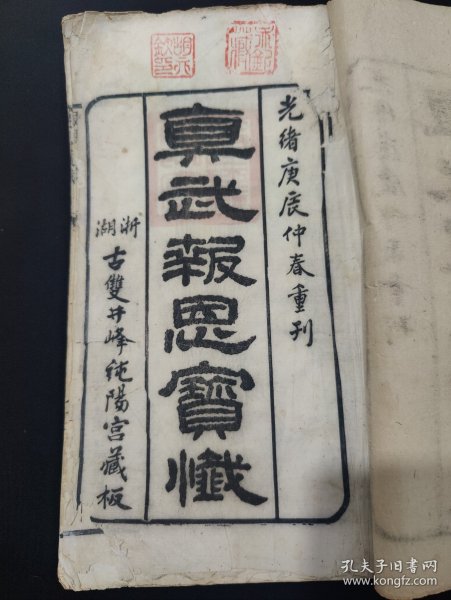 光緒庚辰仲春重刊
真武報恩寶懺
浙湖
古雙井峰純陽宮藏板
孔夫子旧书网
www.kongfz.com